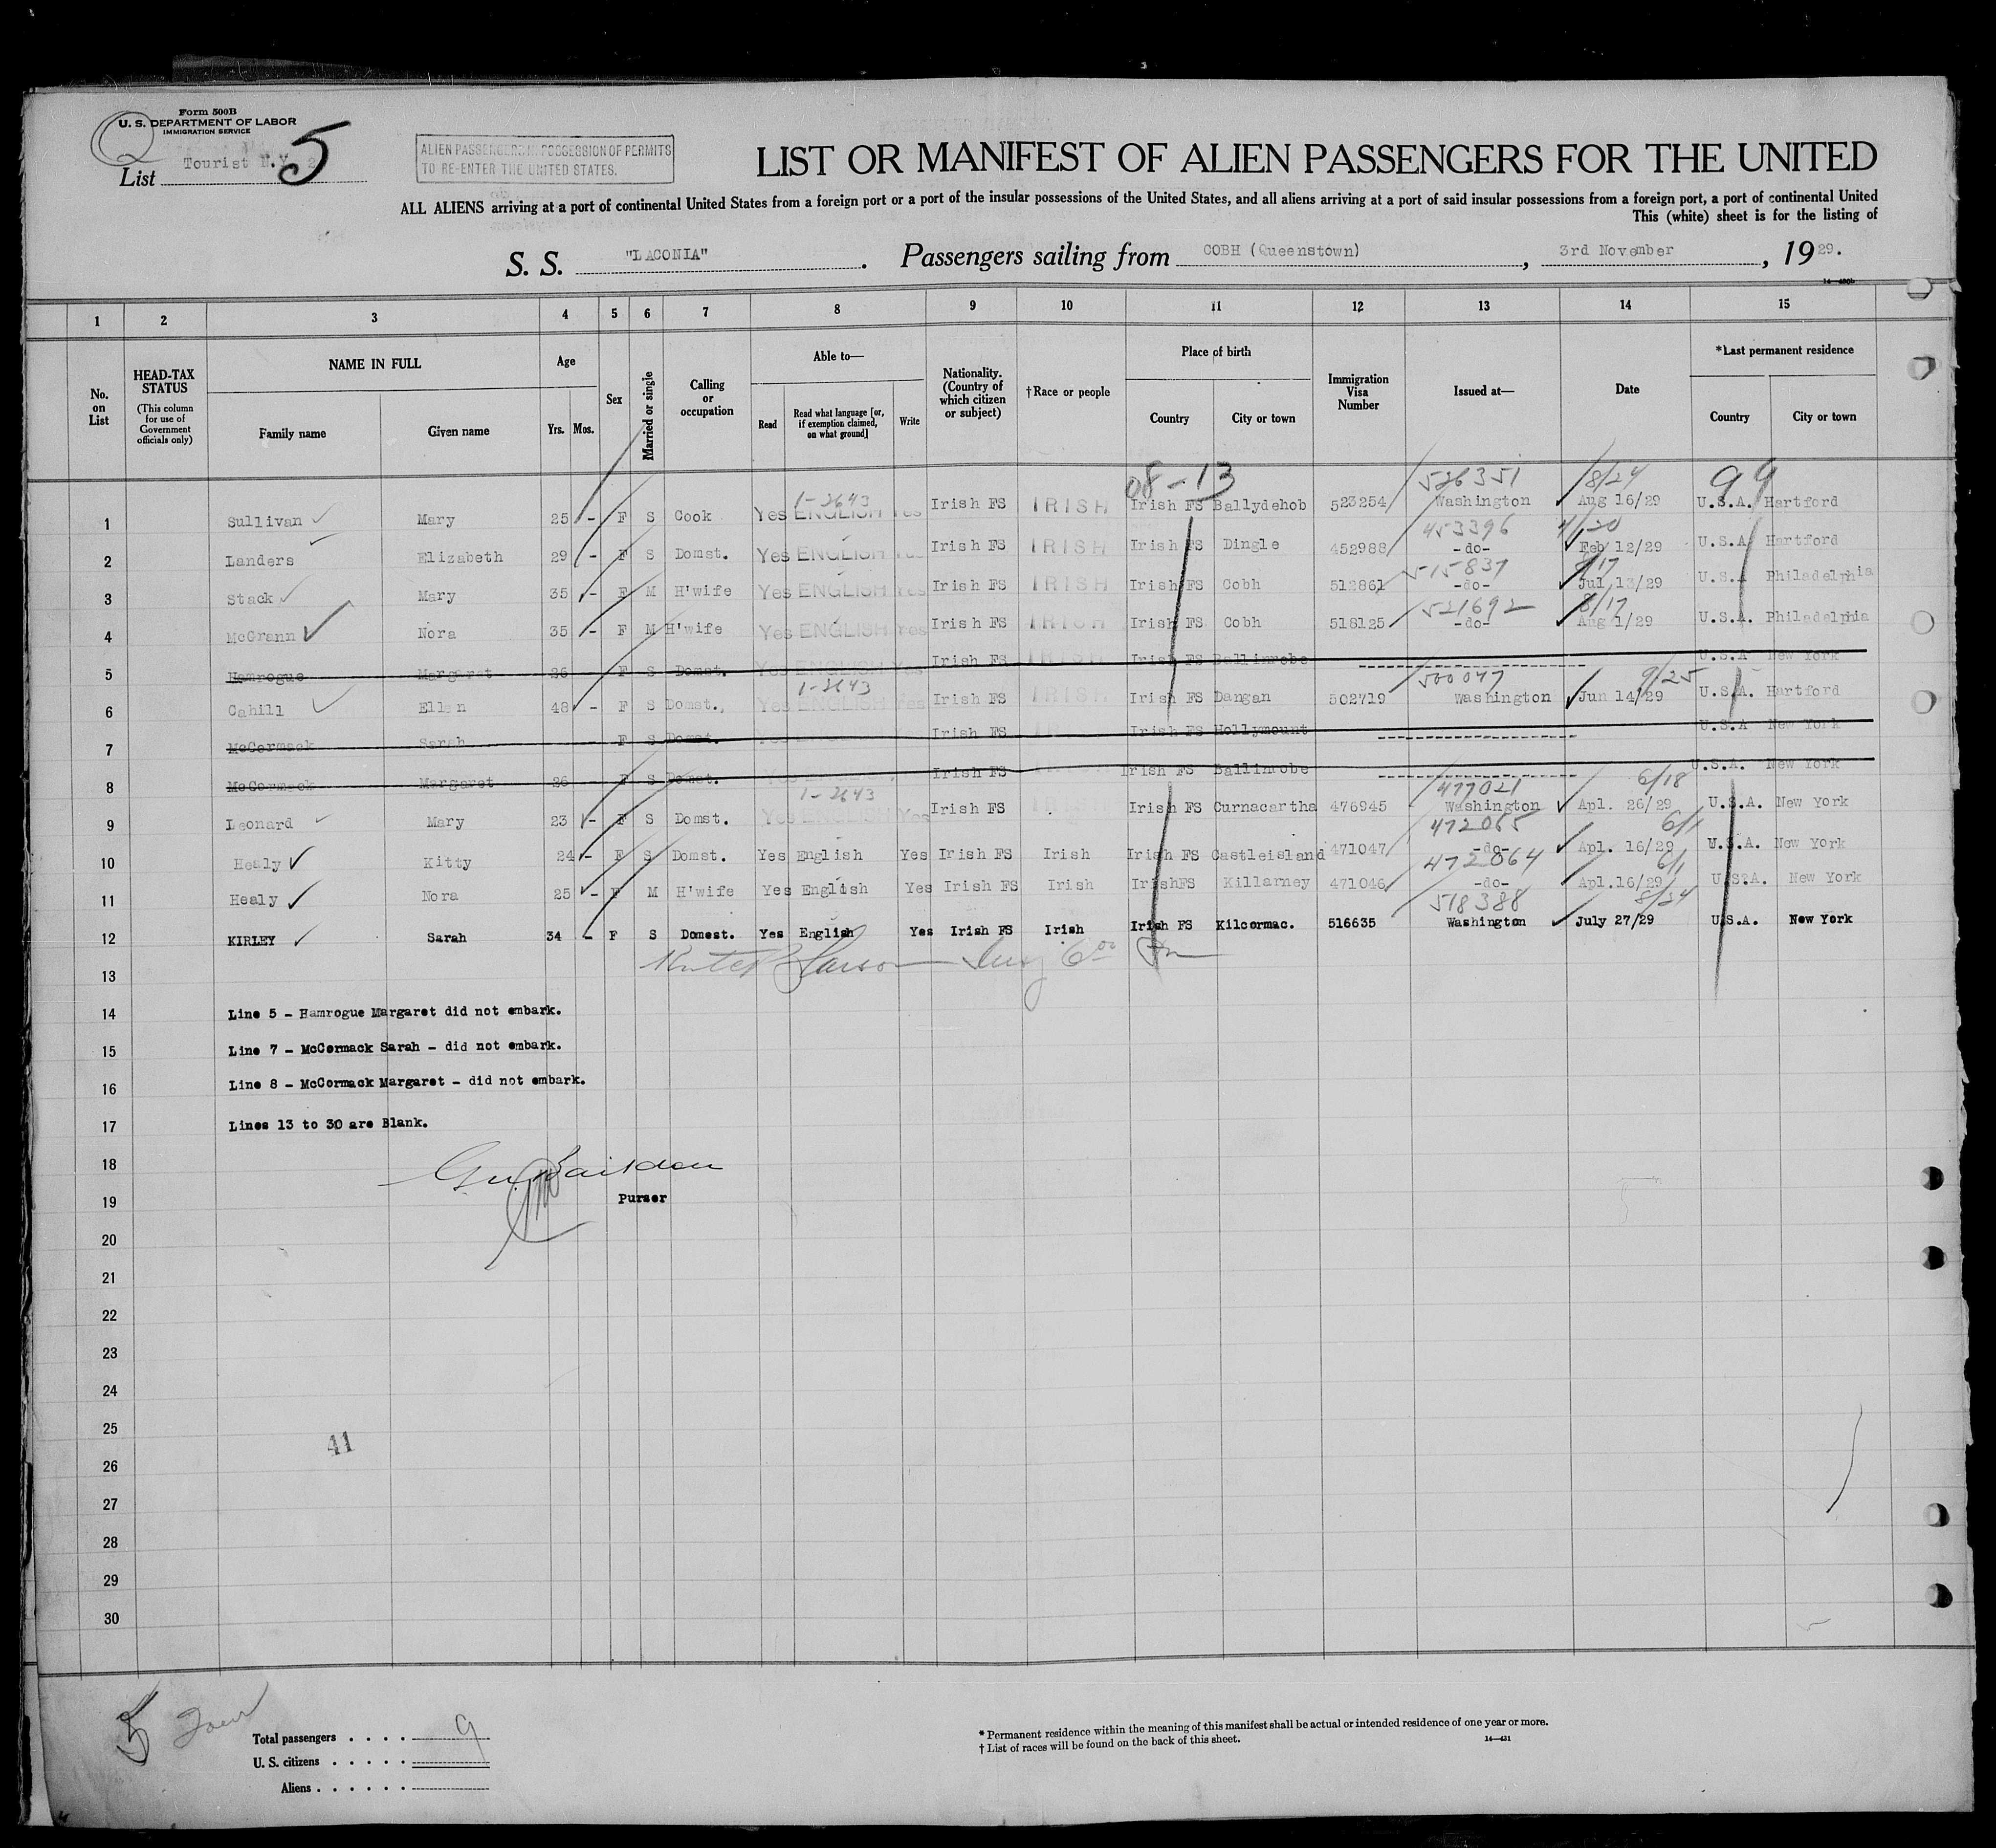 Form 500B
U. S. DEPARTMENT OF LABOR
IMMIGRATION SERVICE
List Tourist N.Y. 5
ALIEN PASSENGERS IN POSSESSION OF PERMITS
TO RE-ENTER THE UNITED STATES.
LIST OR MANIFEST OF ALIEN PASSENGERS FOR THE UNITED
ALL ALIENS arriving at a port of continental United States from a foreign port or a port of the insular possessions of the United States, and all aliens arriving at a port of said insular possessions from a foreign port, a port of continental United
This (white) sheet is for the listing of
S. S. "LACONIA" . Passengers sailing from COBH (Queenstown) , 3rd November , 1929.
14—430b
1 2 3 4 5 6 7 8 9 10 11 12 13 14 15
No. on List
HEAD-TAX STATUS (This column for use of Government officials only)
NAME IN FULL Family name Given name
Age Yrs. Mos.
Sex
Married or single
Calling or occupation
Able to— Read Read what language [or, if exemption claimed, on what ground] Write
Nationality. (Country of which citizen or subject)
†Race or people
Place of birth Country City or town
Immigration Visa Number
Issued at—
Date
*Last permanent residence Country City or town
08-13 526351 8/24 99
1-2643
1 Sullivan Mary 25 - F S Cook Yes ENGLISH Yes Irish FS IRISH Irish FS Ballydehob 523254 Washington Aug 16/29 U.S.A. Hartford
453396 4/20
2 Landers Elizabeth 29 - F S Domst. Yes ENGLISH Yes Irish FS IRISH Irish FS Dingle 452988 -do- Feb 12/29 U.S.A Hartford
515837 8/17
3 Stack Mary 35 - F M H'wife Yes ENGLISH Yes Irish FS IRISH Irish FS Cobh 512861 -do- Jul 13/29 U.S.A Philadelphia
521692 8/17
4 McGrann Nora 35 - F M H'wife Yes ENGLISH Yes Irish FS IRISH Irish FS Cobh 518125 -do- Aug 1/29 U.S.A. Philadelphia
5 Hamrogue Margaret 26 F S Domst. Yes ENGLISH Yes Irish FS IRISH Irish FS Ballinrobe U.S.A New York
1-2643 500047 9/25
6 Cahill Ellen 48 - F S Domst., Yes ENGLISH Yes Irish FS IRISH Irish FS Dangan 502719 Washington Jun 14/29 U.S.A. Hartford
7 McCormack Sarah F S Domst. Yes Irish FS Irish FS Hollymount U.S.A New York
8 McCormack Margaret 26 F S Domst. Irish FS Irish FS Ballinrobe U.S.A. New York
1-2643 477021 6/18
9 Leonard Mary 23 - F S Domst. Yes ENGLISH Yes Irish FS Irish FS Curnacartha 476945 Washington Apl. 26/29 U.S.A. New York
472065 6/1
10 Healy Kitty 24 - F S Domst. Yes English Yes Irish FS Irish Irish FS Castleisland 471047 -do- Apl. 16/29 U.S.A. New York
472064 6/1
11 Healy Nora 25 - F M H'wife Yes English Yes Irish FS Irish IrishFS Killarney 471046 -do- Apl.16/29 U.S.A. New York
518388 8/24
12 KIRLEY Sarah 34 - F S Domest. Yes English Yes Irish FS Irish Irish FS Kilcormac. 516635 Washington July 27/29 U.S.A. New York
13
14 Line 5 - Hamrogue Margaret did not embark.
15 Line 7 - McCormack Sarah - did not embark.
16 Line 8 - McCormack Margaret - did not embark.
17 Lines 13 to 30 are Blank.
18
19 Purser
20
21
22
23
24
25
41
26
27
28
29
30
5
Total passengers . . . . 9
U. S. citizens . . . . .
Aliens . . . . . .
* Permanent residence within the meaning of this manifest shall be actual or intended residence of one year or more.
† List of races will be found on the back of this sheet.
14—431